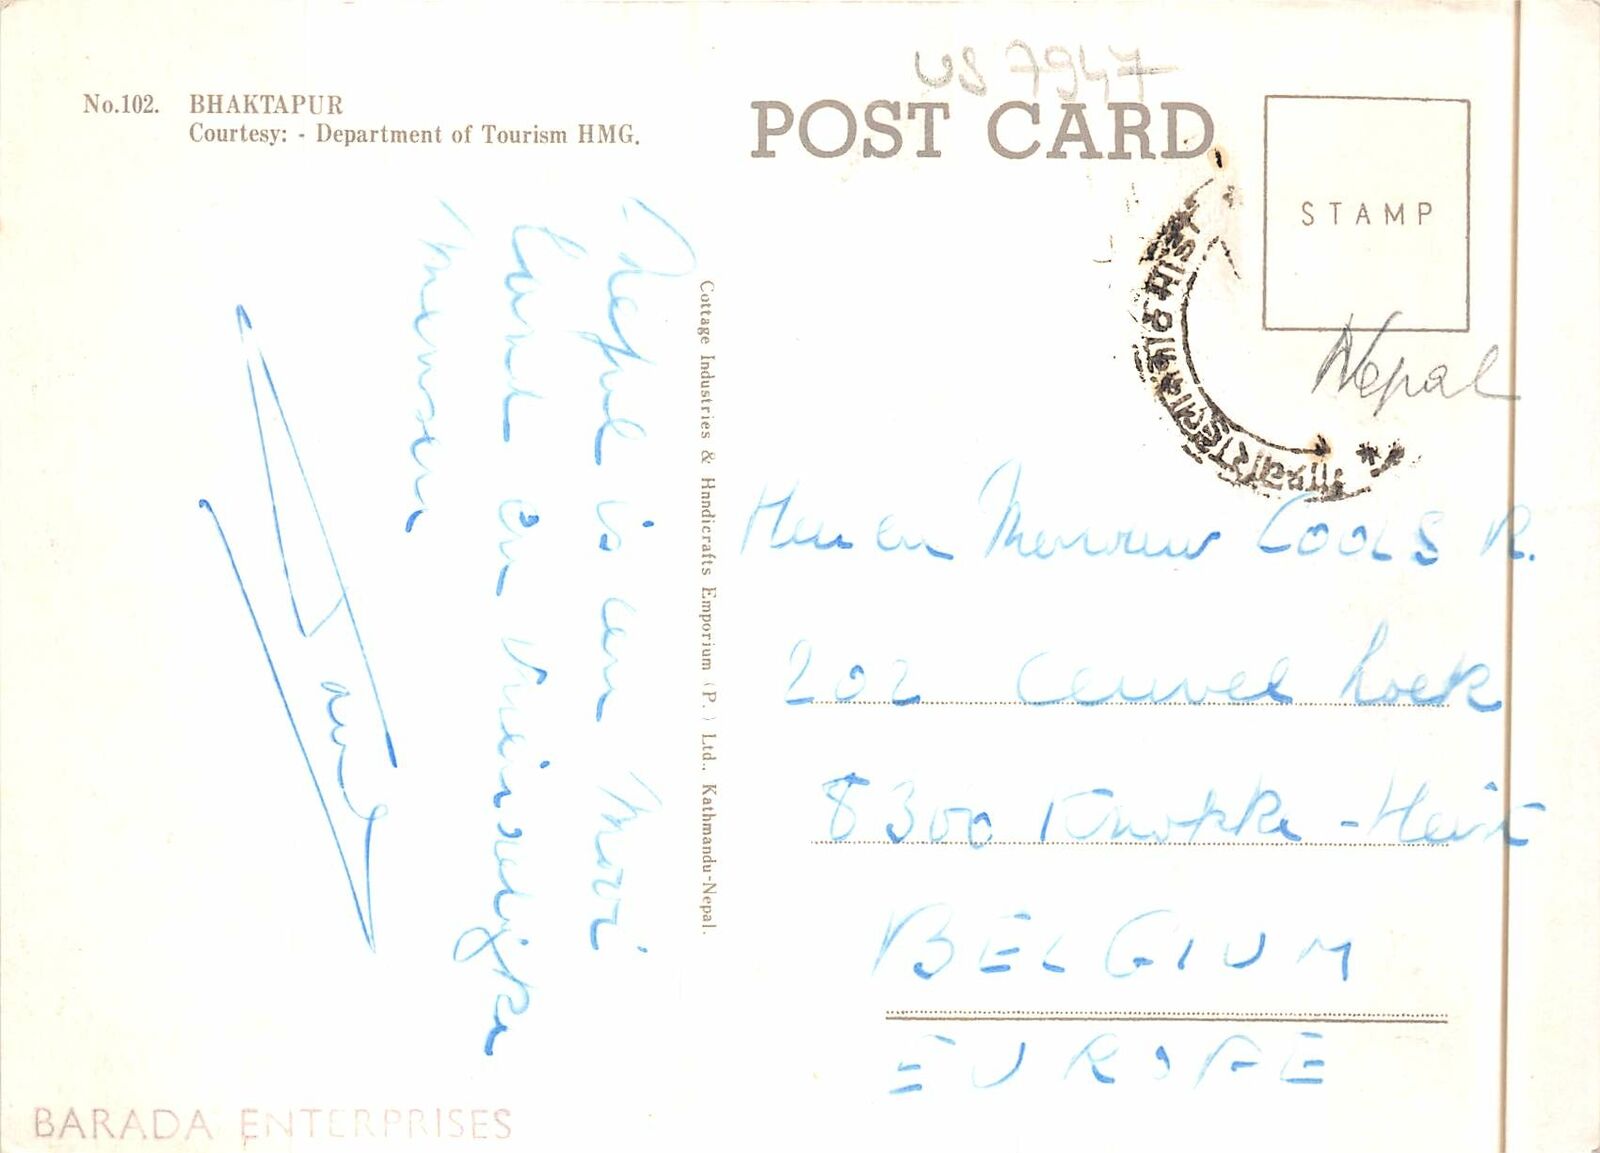 US 7947
No.102. BHAKTAPUR
Courtesy: - Department of Tourism HMG.
POST CARD
STAMP
Nepal
Nepal is een mooi
land en vriendelijke
mensen
Cottage Industries & Hnndicrafts Emporium (P.) Ltd., Kathmandu-Nepal.
Heer en Mevrouw COOLS R.
202 hoek
8300 Knokke-Heist
BELGIUM
EUROPE
BARADA ENTERPRISES